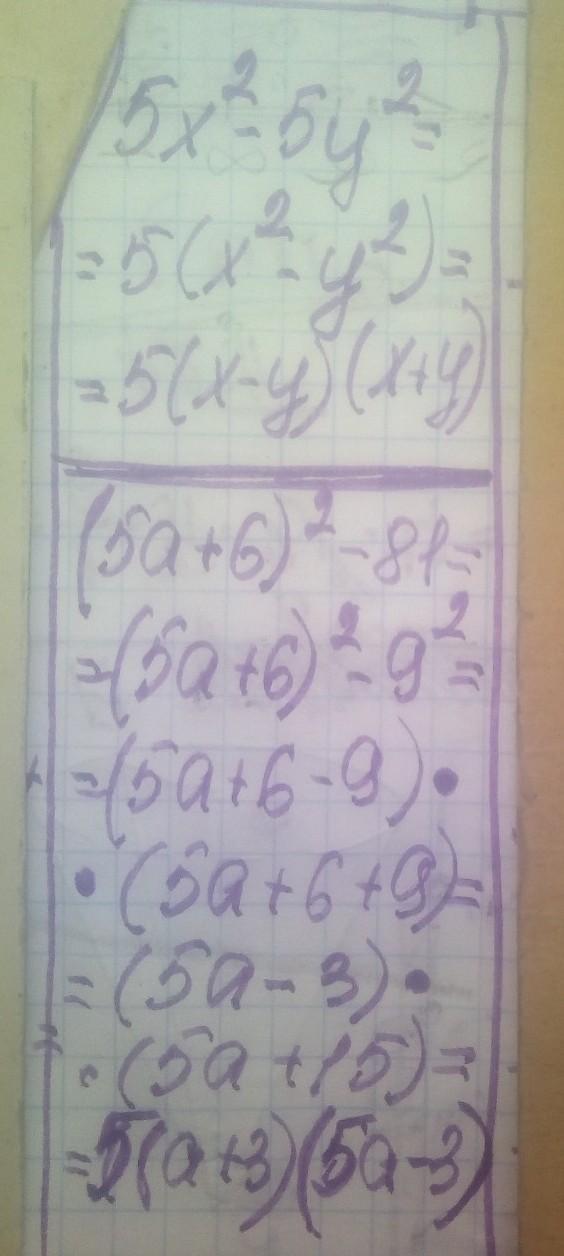 5x² - 5y² =
= 5(x² - y²) =
= 5(x - y)(x + y)
(5a + 6)² - 81 =
= (5a + 6)² - 9² =
= (5a + 6 - 9) •
• (5a + 6 + 9) =
= (5a - 3) •
• (5a + 15) =
= 5(a + 3)(5a - 3)